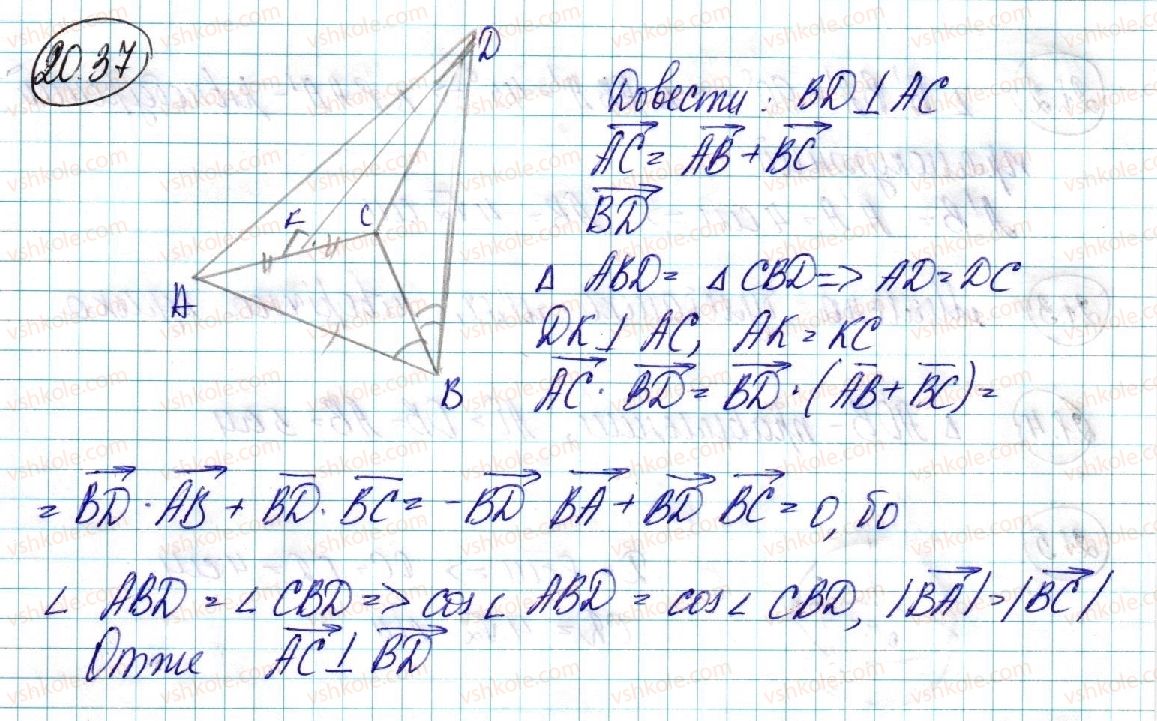 20.37
D
Довести: BD ⊥ AC
AC⃗ = AB⃗ + BC⃗
BD⃗
K C
A
B
△ ABD = △ CBD => AD = DC
DK ⊥ AC, AK = KC
AC⃗ · BD⃗ = BD⃗ · (AB⃗ + BC⃗) =
= BD⃗ · AB⃗ + BD⃗ · BC⃗ = -BD⃗ BA⃗ + BD⃗ BC⃗ = 0, бо
∠ ABD = ∠ CBD => cos∠ ABD = cos∠ CBD, |BA⃗| = |BC⃗|
Отже AC⃗ ⊥ BD⃗
vshkole.com